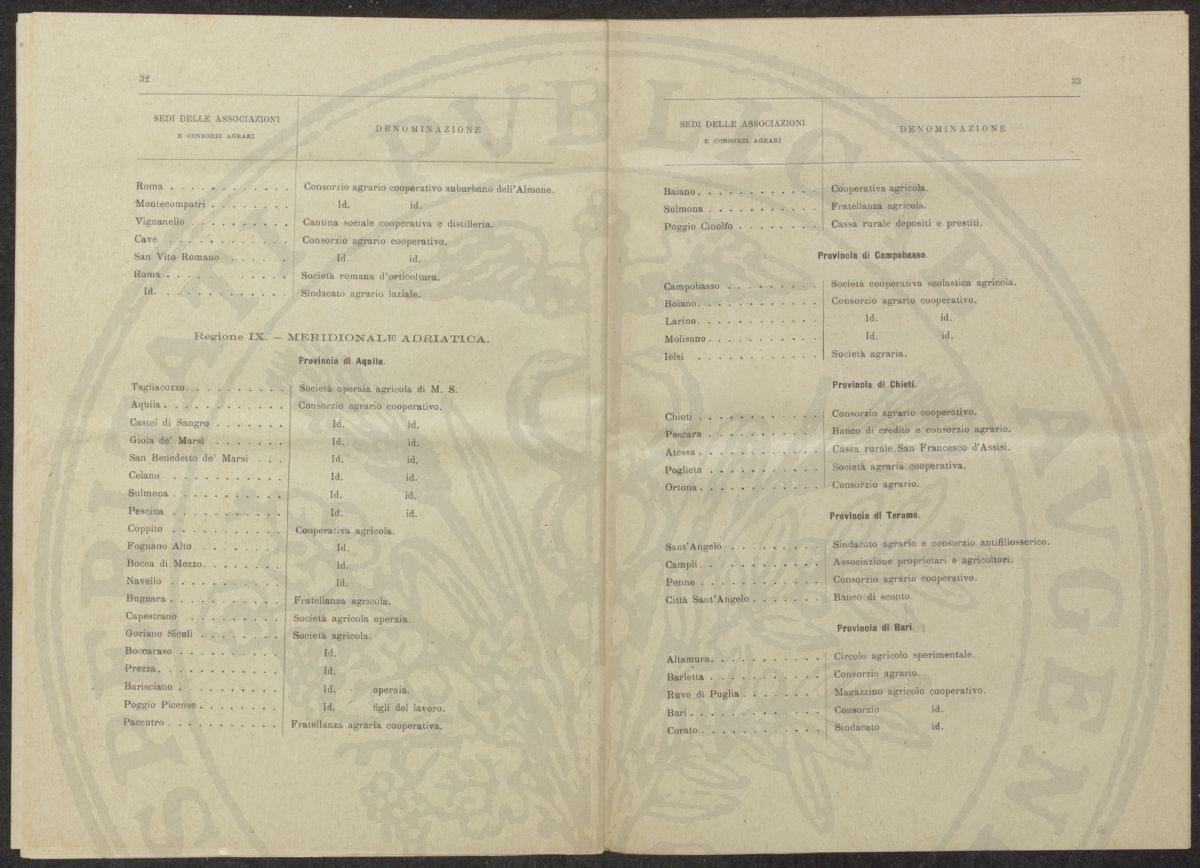 32
SEDI DELLE ASSOCIAZIONI
E CONSORZI AGRARI
DENOMINAZIONE
Roma . . . . . . . . . . . . Consorzio agrario cooperativo suburbano dell'Almone.
Montecompatri . . . . . . . . Id. id.
Vignanello . . . . . . . . Cantina sociale cooperativa e distilleria.
Cave . . . . . . . . . . . Consorzio agrario cooperativo.
San Vito Romano . . . . . Id. id.
Roma . . . . . . . . . . . . Società romana d'orticoltura.
Id. . . . . . . . . . . . . . Sindacato agrario laziale.
Regione IX. — MERIDIONALE ADRIATICA.
Provincia di Aquila.
Tagliacozzo. . . . . . . . . . Società operaia agricola di M. S.
Aquila . . . . . . . . . . . . Consorzio agrario cooperativo.
Castel di Sangro . . . . . . . Id. id.
Gioia de' Marsi . . . . . . . Id. id.
San Benedetto de' Marsi . . . Id. id.
Celano . . . . . . . . . . . Id. id.
Sulmona . . . . . . . . . . . Id. id.
Pescina . . . . . . . . . . . Id. id.
Coppito . . . . . . . . . . . Cooperativa agricola.
Fognano Alto . . . . . . . . . Id.
Bocca di Mezzo. . . . . . . . Id.
Navello . . . . . . . . . . . Id.
Bugnara . . . . . . . . . . . Fratellanza agricola.
Capestrano . . . . . . . . . Società agricola operaia.
Goriano Siculi . . . . . . . . Società agricola.
Boccaraso . . . . . . . . . . Id.
Prezza. . . . . . . . . . . . Id.
Barisciano . . . . . . . . . . Id. operaia.
Poggio Picense . . . . . . . . Id. figli del lavoro.
Paccutro . . . . . . . . . . . Fratellanza agraria cooperativa.
33
SEDI DELLE ASSOCIAZIONI
E CONSORZI AGRARI
DENOMINAZIONE
Baiano . . . . . . . . . . . . Cooperativa agricola.
Sulmona . . . . . . . . . . . Fratellanza agricola.
Poggio Cinolfo . . . . . . . . Cassa rurale depositi e prestiti.
Provincia di Campobasso.
Campobasso . . . . . . . . . Società cooperativa scolastica agricola.
Boiano. . . . . . . . . . . . Consorzio agrario cooperativo.
Larino. . . . . . . . . . . . Id. id.
Molisano . . . . . . . . . . . Id. id.
Ielsi . . . . . . . . . . . Società agraria.
Provincia di Chieti.
Chieti . . . . . . . . . . . . Consorzio agrario cooperativo.
Pescara . . . . . . . . . . . Banco di credito e consorzio agrario.
Atessa . . . . . . . . . . . . Cassa rurale San Francesco d'Assisi.
Poglieta . . . . . . . . . . . Società agraria cooperativa.
Ortona . . . . . . . . . . . . Consorzio agrario.
Provincia di Teramo.
Sant'Angelo . . . . . . . . . Sindacato agrario e consorzio antifillosserico.
Campli . . . . . . . . . . . . Associazione proprietari e agricoltori.
Penne . . . . . . . . . . . . Consorzio agrario cooperativo.
Città Sant'Angelo . . . . . . . Banco di sconto.
Provincia di Bari.
Altamura. . . . . . . . . . . Circolo agricolo sperimentale.
Barletta . . . . . . . . . . . Consorzio agrario.
Ruvo di Puglia . . . . . . . . Magazzino agricolo cooperativo.
Bari . . . . . . . . . . . . . Consorzio id.
Corato . . . . . . . . . . . . Sindacato id.